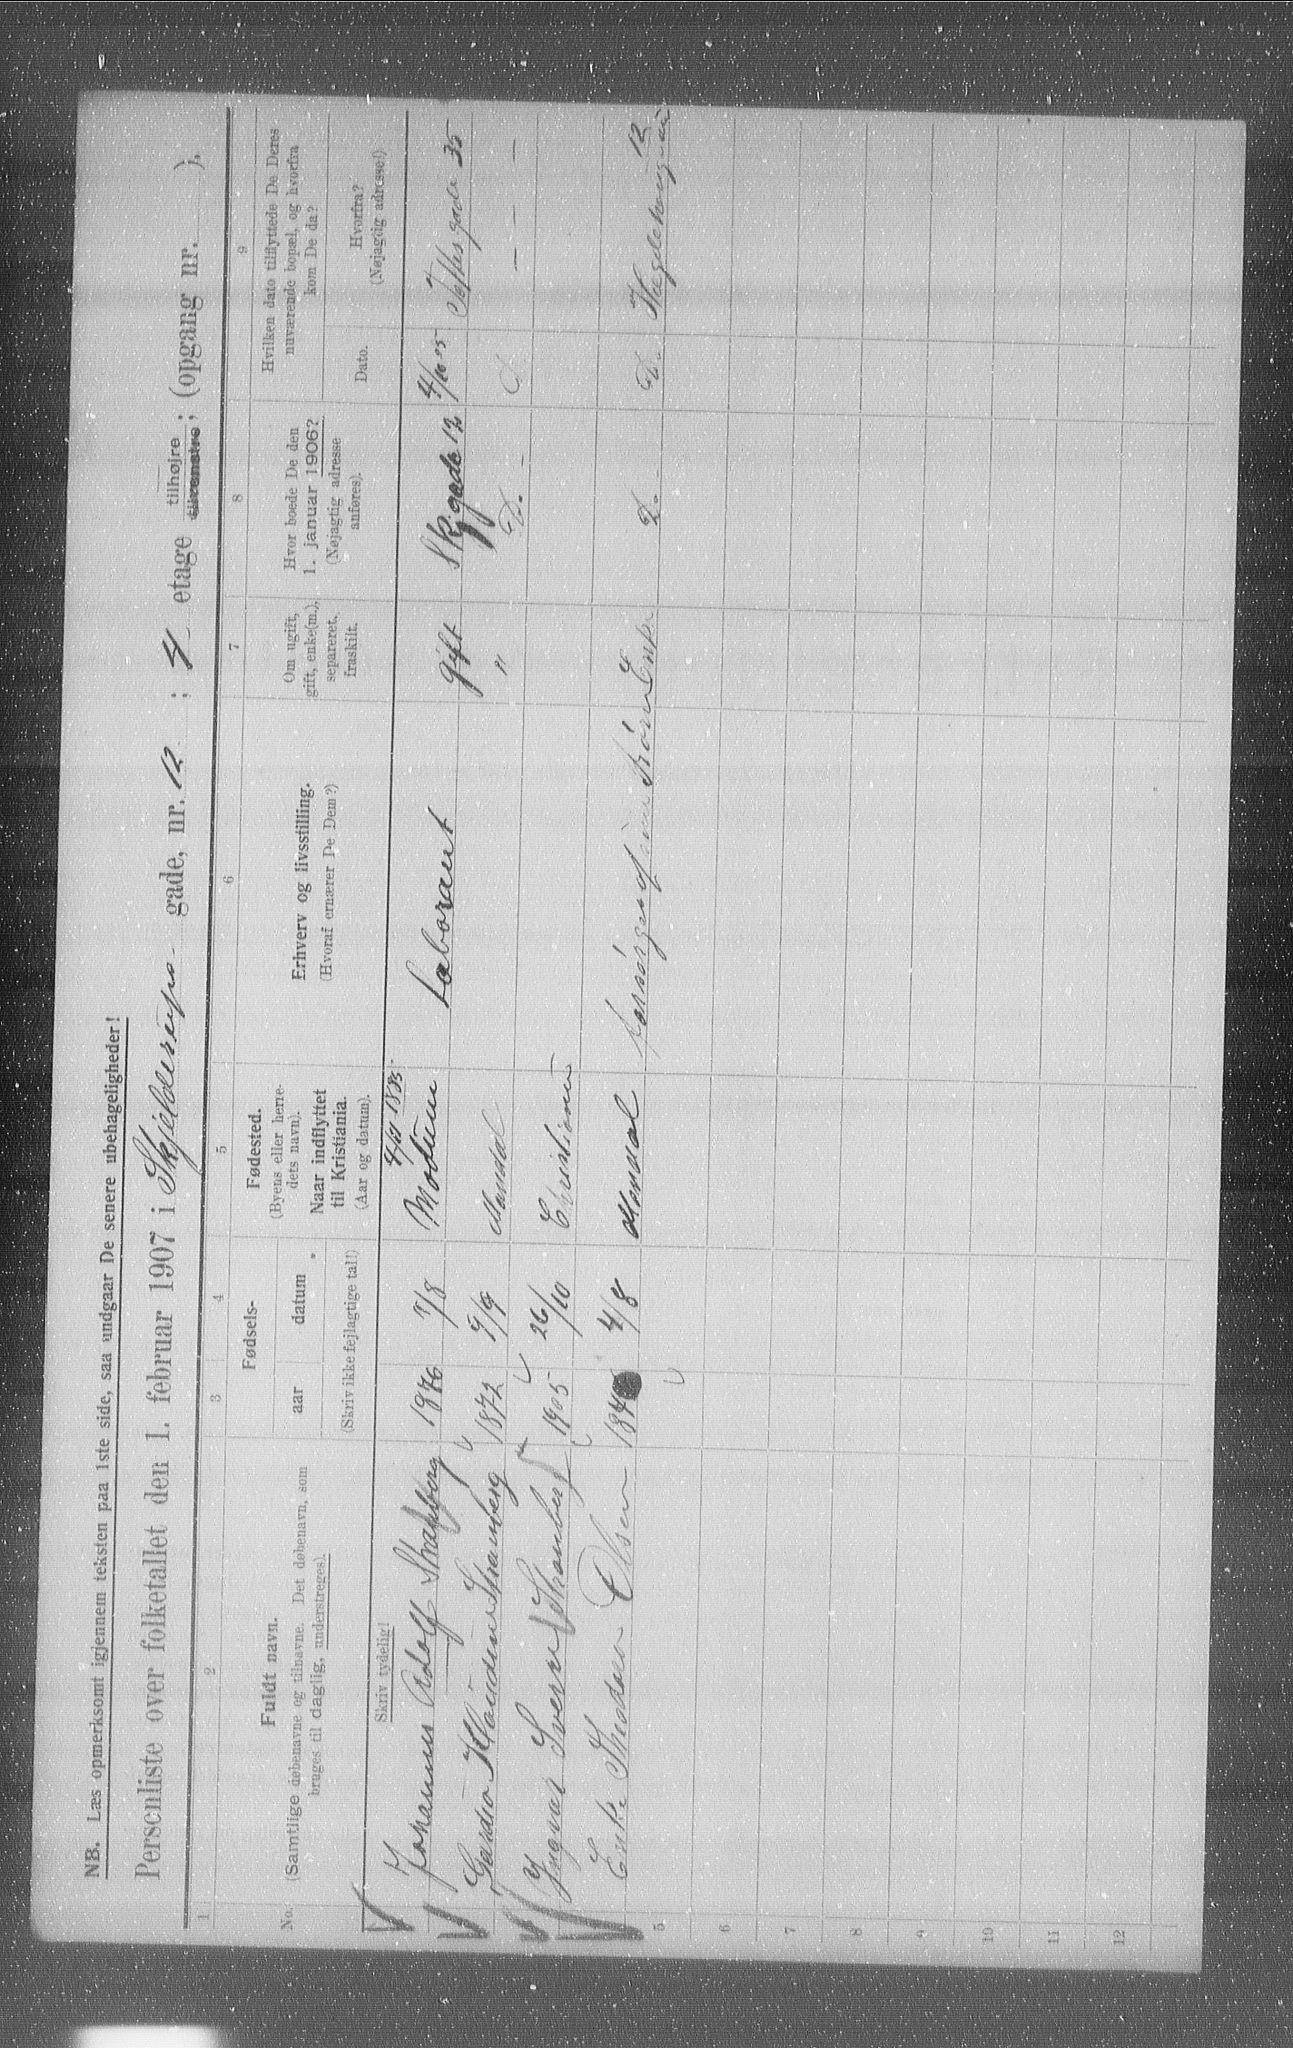 NB. Læs opmerksomt igjennem teksten paa 1ste side, saa undgaar De senere ubehageligheder!
Personliste over folketallet den 1. februar 1907 i Skjelderups- gade, nr. 12 ; 4 etage tilhøjre tilvenstre; (opgang nr. ).
1 2 3 4 5 6 7 8 9
No. Fuldt navn.
(Samtlige døbenavne og tilnavne. Det døbenavn, som
bruges til daglig, understreges).
Skriv tydelig!
Fødsels-
aar datum
(Skriv ikke fejlagtige tal!)
Fødested.
(Byens eller herre-
dets navn).
Naar indflyttet
til Kristiania.
(Aar og datum).
Erhverv og livsstilling.
(Hvoraf ernærer De Dem?)
Om ugift,
gift, enke(m.),
separeret,
fraskilt.
Hvor boede De den
1. januar 1906?
(Nøjagtig adresse
anføres).
Hvilken dato tilflyttede De Deres
nuværende bopæl, og hvorfra
kom De da?
Dato.
Hvorfra?
(Nøjagtig adresse!)
Johannes Adolf 1876 7/8 Modum Laborant gift Sk.gade 12 gade 35
1872 9/9 Mandal " D. - - - -
Ingvar Sverre 1905 26/10 Christiania
Enke Olsen 4/8 Mandal Enke D. D. 12
5
6
7
8
9
10
11
12